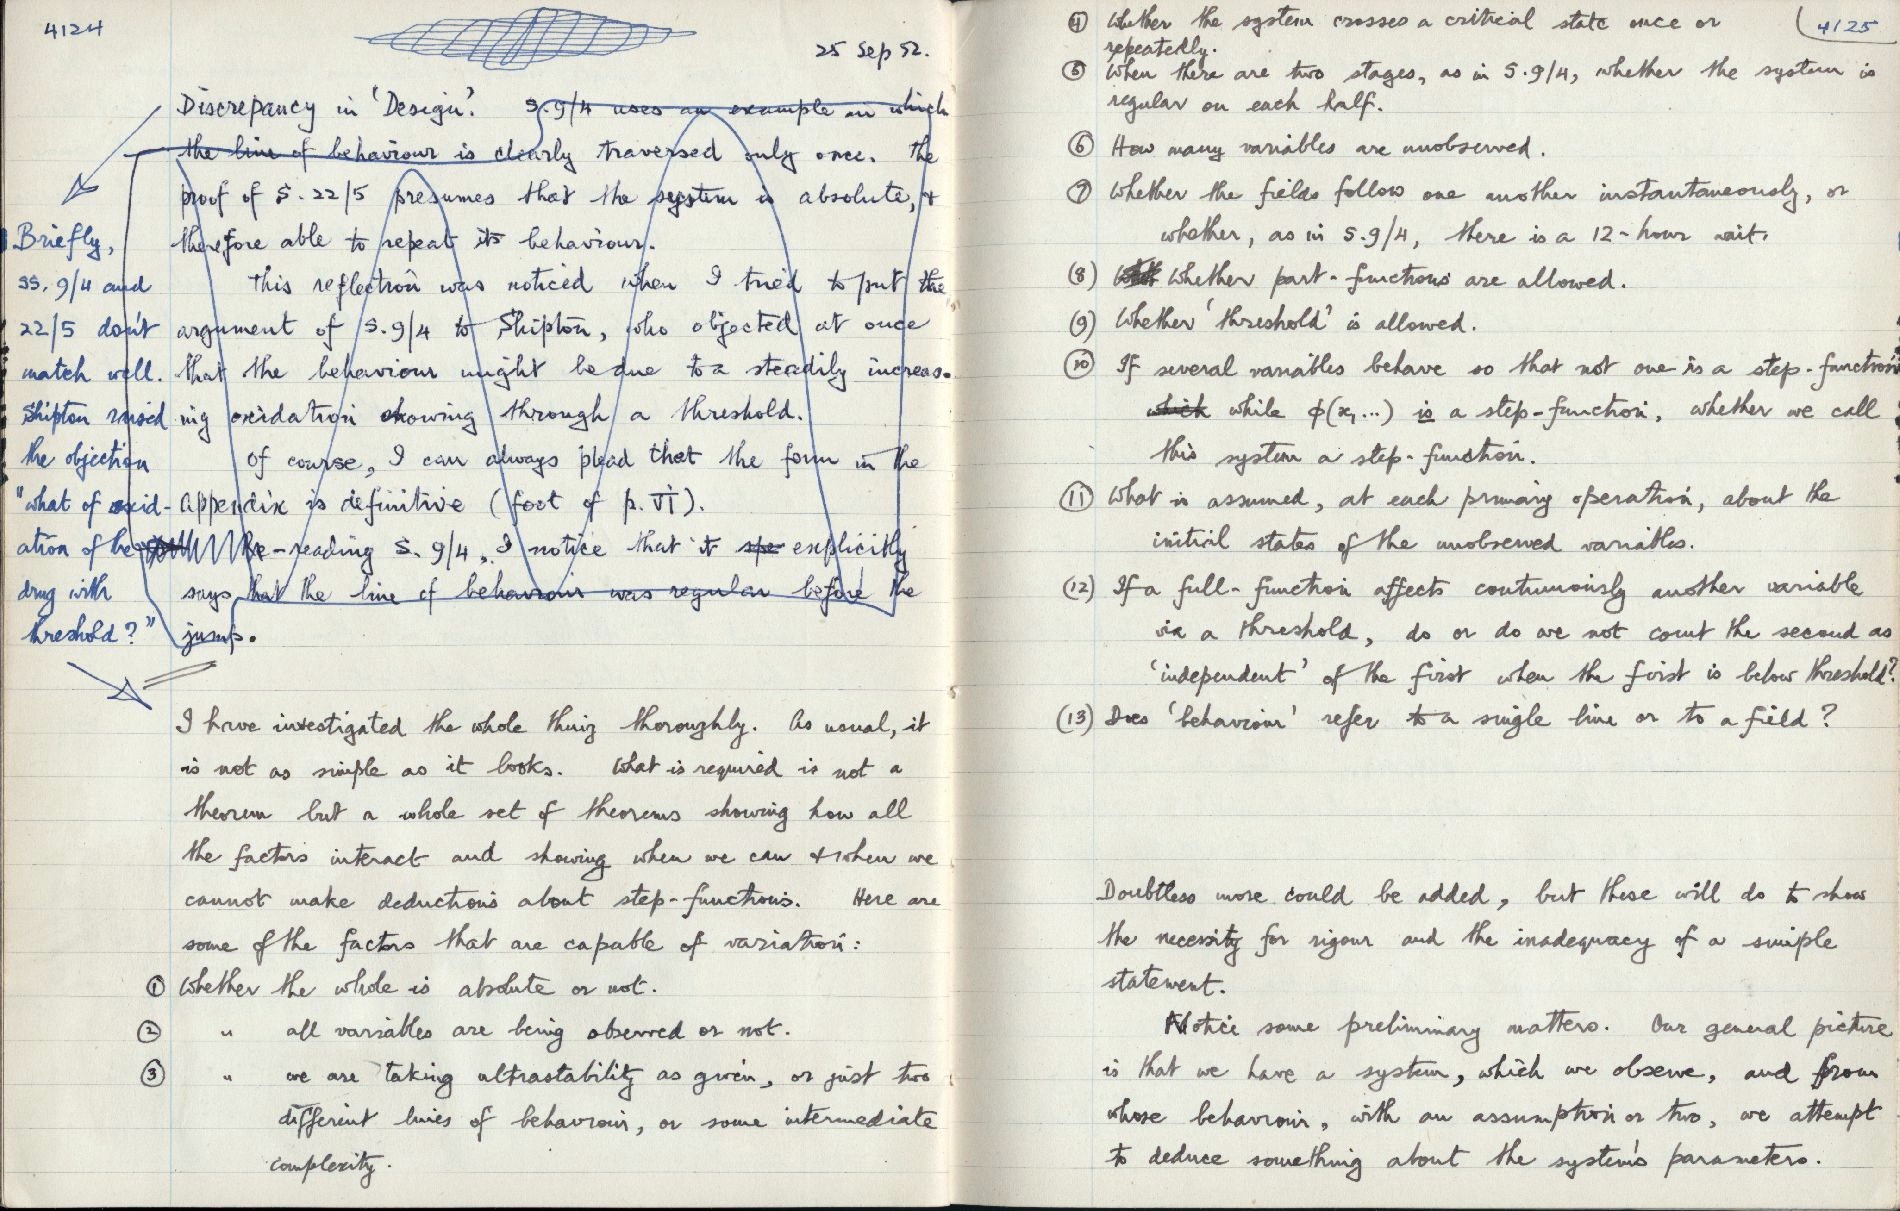 4124
25 Sep 52.
Discrepancy in 'Design'. S.9/4 uses an example in which
the line of behaviour is clearly traversed only once. The
proof of S.22/5 presumes that the system is absolute, +
therefore able to repeat its behaviour.
This reflection was noticed when I tried to put the
argument of S.9/4 to Shipton, who objected at once
that the behaviour might be due to a steadily increas-
ing oxidation showing through a threshold.
Of course, I can always plead that the form in the
appendix is definitive (foot of p. VI).
Re-reading S. 9/4, I notice that it spe explicitly
says that the line of behaviour was regular before the
jump.
Briefly,
SS. 9/4 and
22/5 don't
match well.
Shipton raised
the objection
"what of oxid-
ation of the
drug with
threshold?"
I have investigated the whole thing thoroughly. As usual, it
is not as simple as it looks. What is required is not a
theorem but a whole set of theorems showing how all
the factors interact and showing when we can + when we
cannot make deductions about step-functions. Here are
some of the factors that are capable of variation:
① Whether the whole is absolute or not.
② " all variables are being observed or not.
③ " we are taking ultrastability as given, or just two
different lines of behaviour, or some intermediate
complexity.
4125
④ Whether the system crosses a critical state once or
repeatedly.
⑤ When there are two stages, as in S.9/4, whether the system is
regular on each half.
⑥ How many variables are unobserved.
⑦ Whether the fields follow one another instantaneously, or
whether, as in S.9/4, there is a 12-hour wait.
(8) Whether part-functions are allowed.
(9) Whether 'threshold' is allowed.
⑩ If several variables behave so that not one is a step-function
which while φ(x,...) is a step-function, whether we call
this system a step-function.
⑪ What is assumed, at each primary operation, about the
initial states of the unobserved variables.
(12) If a full-function affects continuously another variable
via a threshold, do or do we not count the second as
'independent' of the first when the first is below threshold?
(13) Does 'behaviour' refer to a single line or to a field?
Doubtless more could be added, but these will do to show
the necessity for rigour and the inadequacy of a simple
statement.
Notice some preliminary matters. Our general picture
is that we have a system, which we observe, and from
whose behaviour, with an assumption or two, we attempt
to deduce something about the system's parameters.